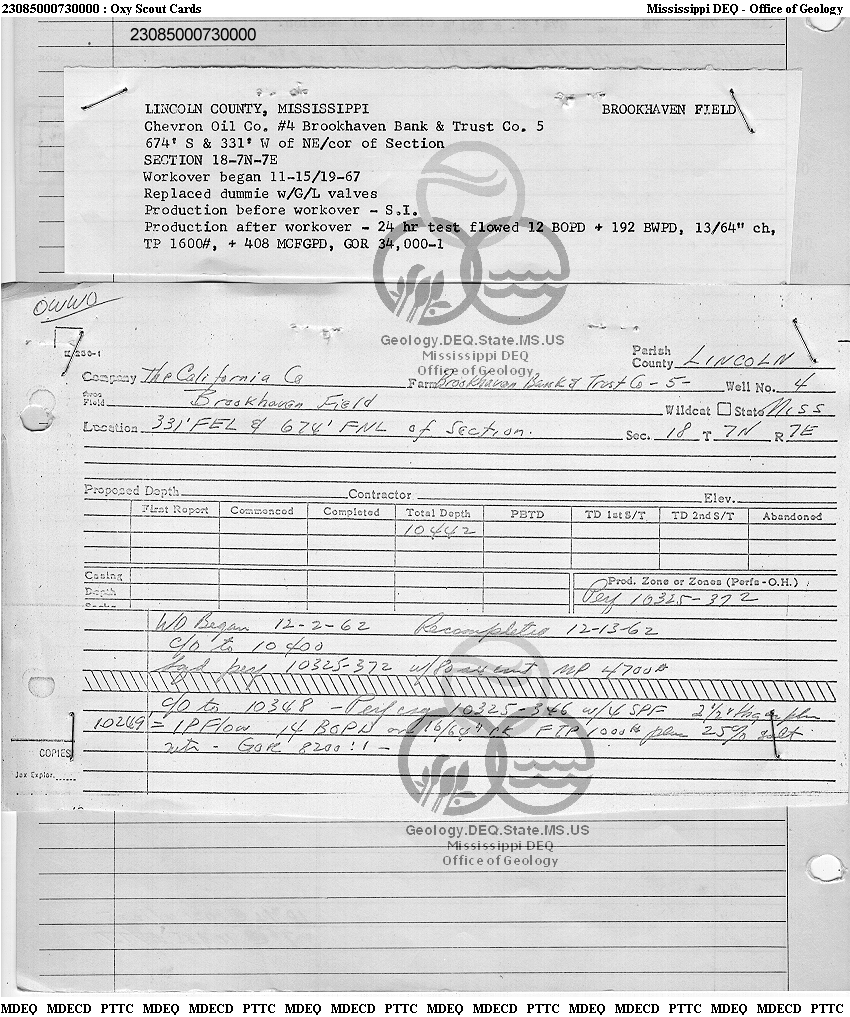 23085000730000 : Oxy Scout Cards
Mississippi DEQ - Office of Geology
23085000730000
LINCOLN COUNTY, MISSISSIPPI BROOKHAVEN FIELD
Chevron Oil Co. #4 Brookhaven Bank & Trust Co. 5
674' S & 331' W of NE/cor of Section
SECTION 18-7N-7E
Workover began 11-15/19-67
Replaced dummie w/G/L valves
Production before workover - S.I.
Production after workover - 24 hr test flowed 12 BOPD + 192 BWPD, 13/64" ch,
TP 1600#, + 408 MCFGPD, GOR 34,000-1
Geology.DEQ.State.MS.US
Mississippi DEQ
Office of Geology
OWWO
Parish
County LINCOLN
Company The California Co Farm Brookhaven Bank & Trust Co -5- Well No. 4
Field Brookhaven Field Wildcat State Miss
Location 331' FEL & 674' FNL of Section. Sec. 18 T 7N R 7E
Proposed Depth Contractor Elev.
First Report Commenced Completed Total Depth PBTD TD 1st S/T TD 2nd S/T Abandoned
10442
Casing Prod. Zone or Zones (Perfs-O.H.)
Depth Perf 10325-372
WO Began 12-2-62 Recompleted 12-13-62
C/O to 10400
Sqzd perf 10325-372 w/80 cement MP 4700#
C/O to 10348 - Perf csg 10325-346 w/4 SPF 2 1/2"
10249' = IP Flow 14 BOPD on 16/64" ck FTP 1000# plus 25% salt
wtr - GOR 8200:1 -
COPIES
Jax Explor.
Geology.DEQ.State.MS.US
Mississippi DEQ
Office of Geology
MDEQ MDECD PTTC MDEQ MDECD PTTC MDEQ MDECD PTTC MDEQ MDECD PTTC MDEQ MDECD PTTC MDEQ MDECD PTTC